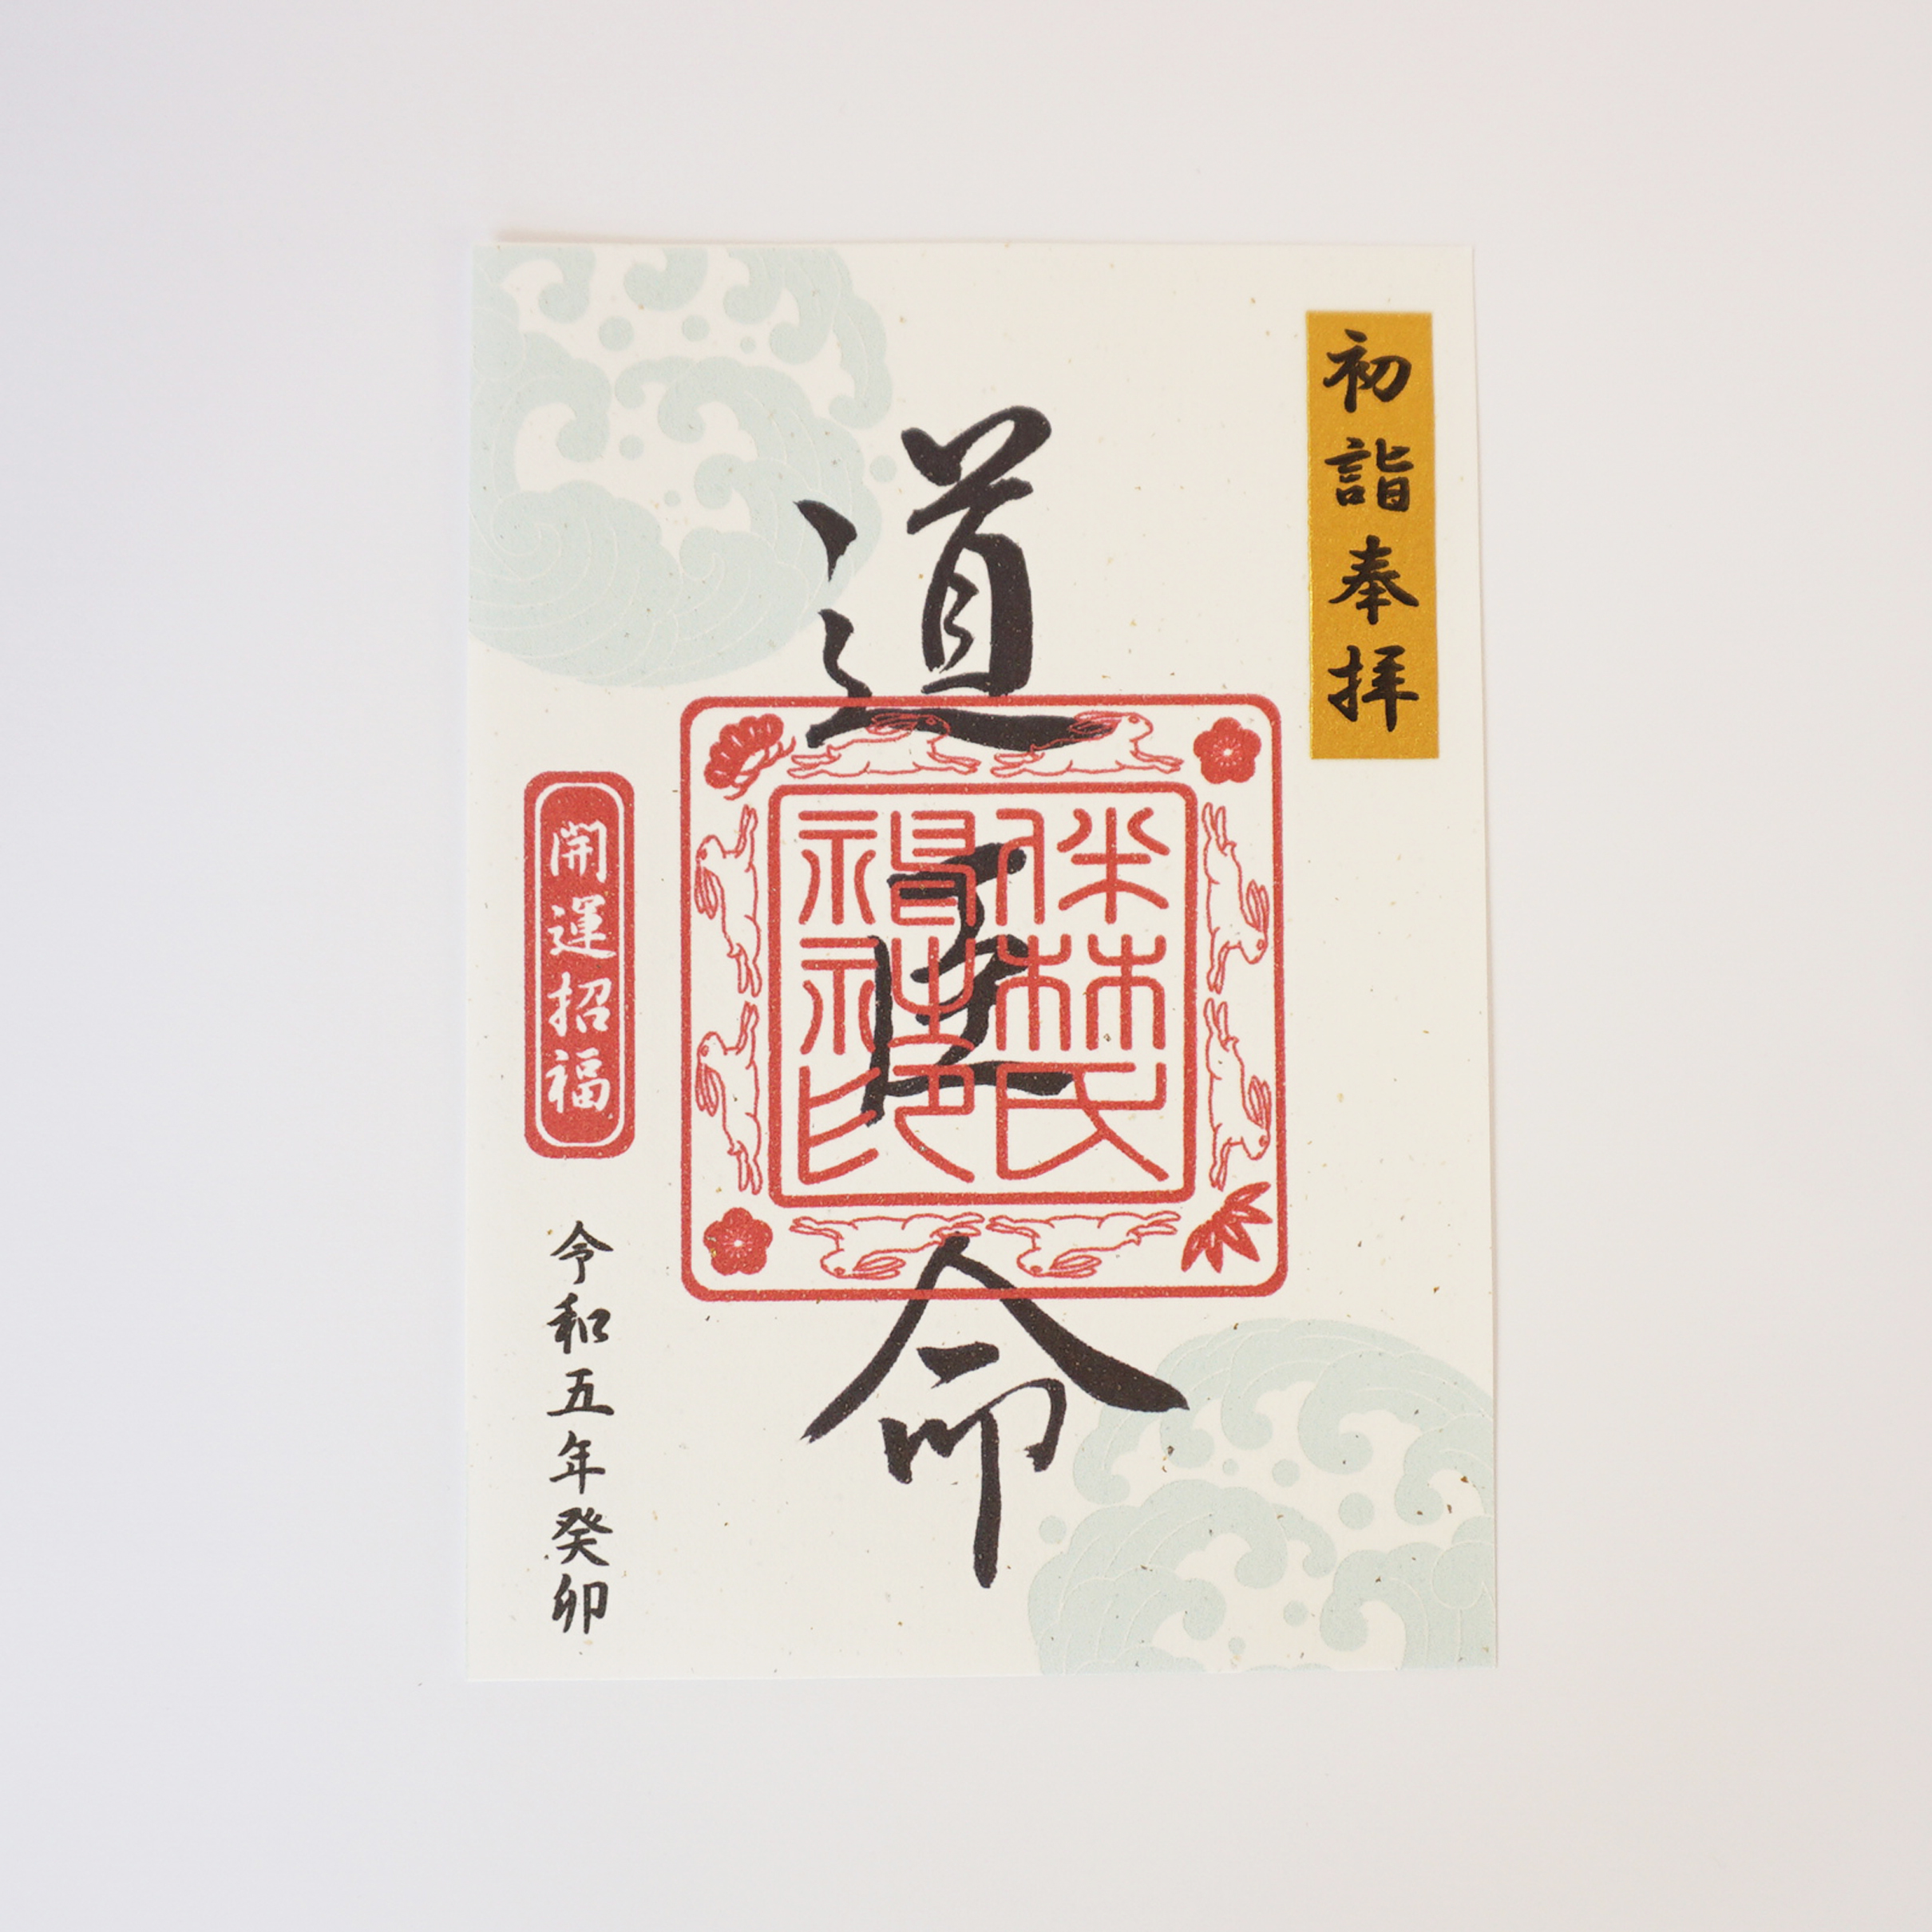 初詣奉拝
道臣命
伴林氏
神社印
開運招福
令和五年癸卯